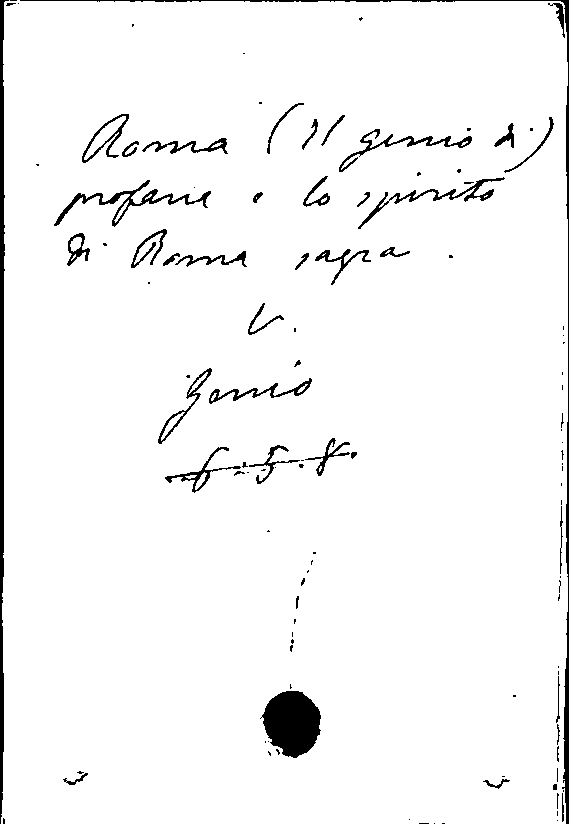 Roma (Il genio di)
profana e lo spirito
di Roma sagra.
V.
Genio
6.5.8.